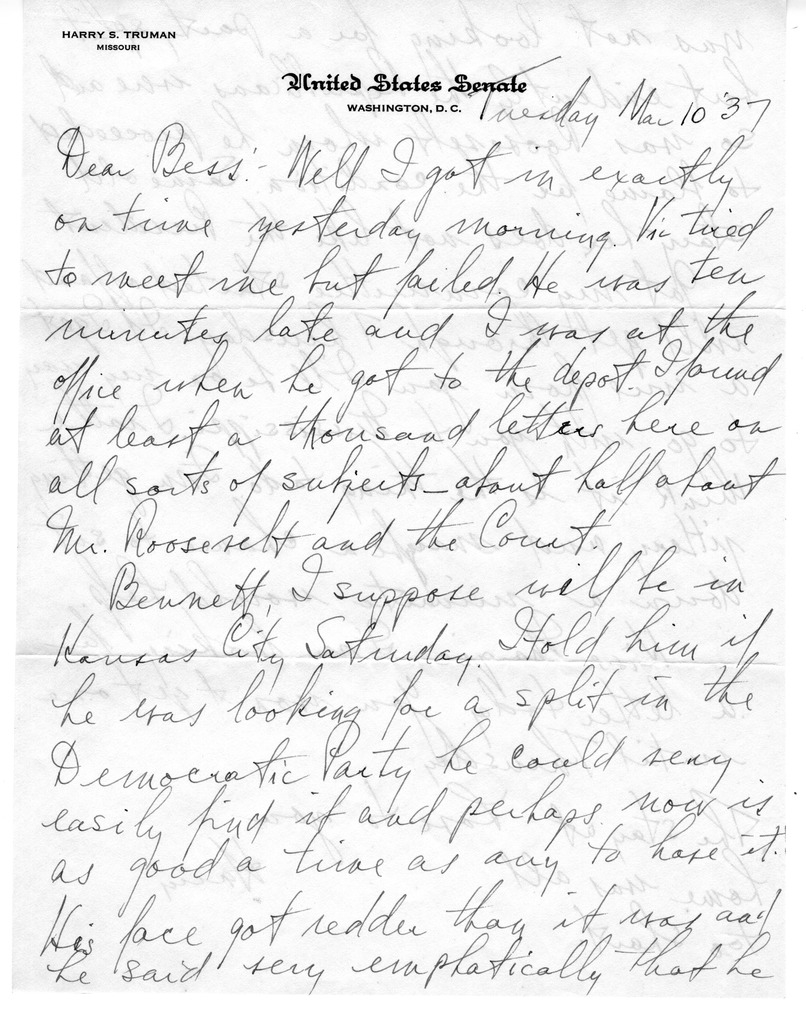 HARRY S. TRUMAN
MISSOURI
United States Senate
WASHINGTON, D. C.
Tuesday Mar 10 '37
Dear Bess:- Well I got in exactly
on time yesterday morning. Vic tried
to meet me but failed. He was ten
minutes late and I was at the
office when he got to the depot. I found
at least a thousand letters here on
all sorts of subjects - about half about
Mr. Roosevelt and the Court.
Bennett, I suppose will be in
Kansas City Saturday. I told him if
he was looking for a split in the
Democratic Party he could very
easily find it and perhaps now is
as good a time as any to have it.
His face got redder than it was and
he said very emphatically that he